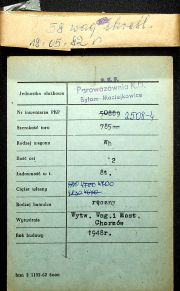 58 wag skreśl.
18.05.82 r
P.K.P.
Jednostka służbowa Parowozownia K.D.
Bytom Maciejkowice
Nr inwentarza PKP 2508-4
Szerokość toru 785mm
Rodzaj wagonu Wb
Ilość osi 2
Ładowność w t. 8t.
Ciężar własny
Rodzaj hamulca ręczny
Wytwórnia Wytw. Wag.i Most.
Chorzów
Rok budowy 1948r.